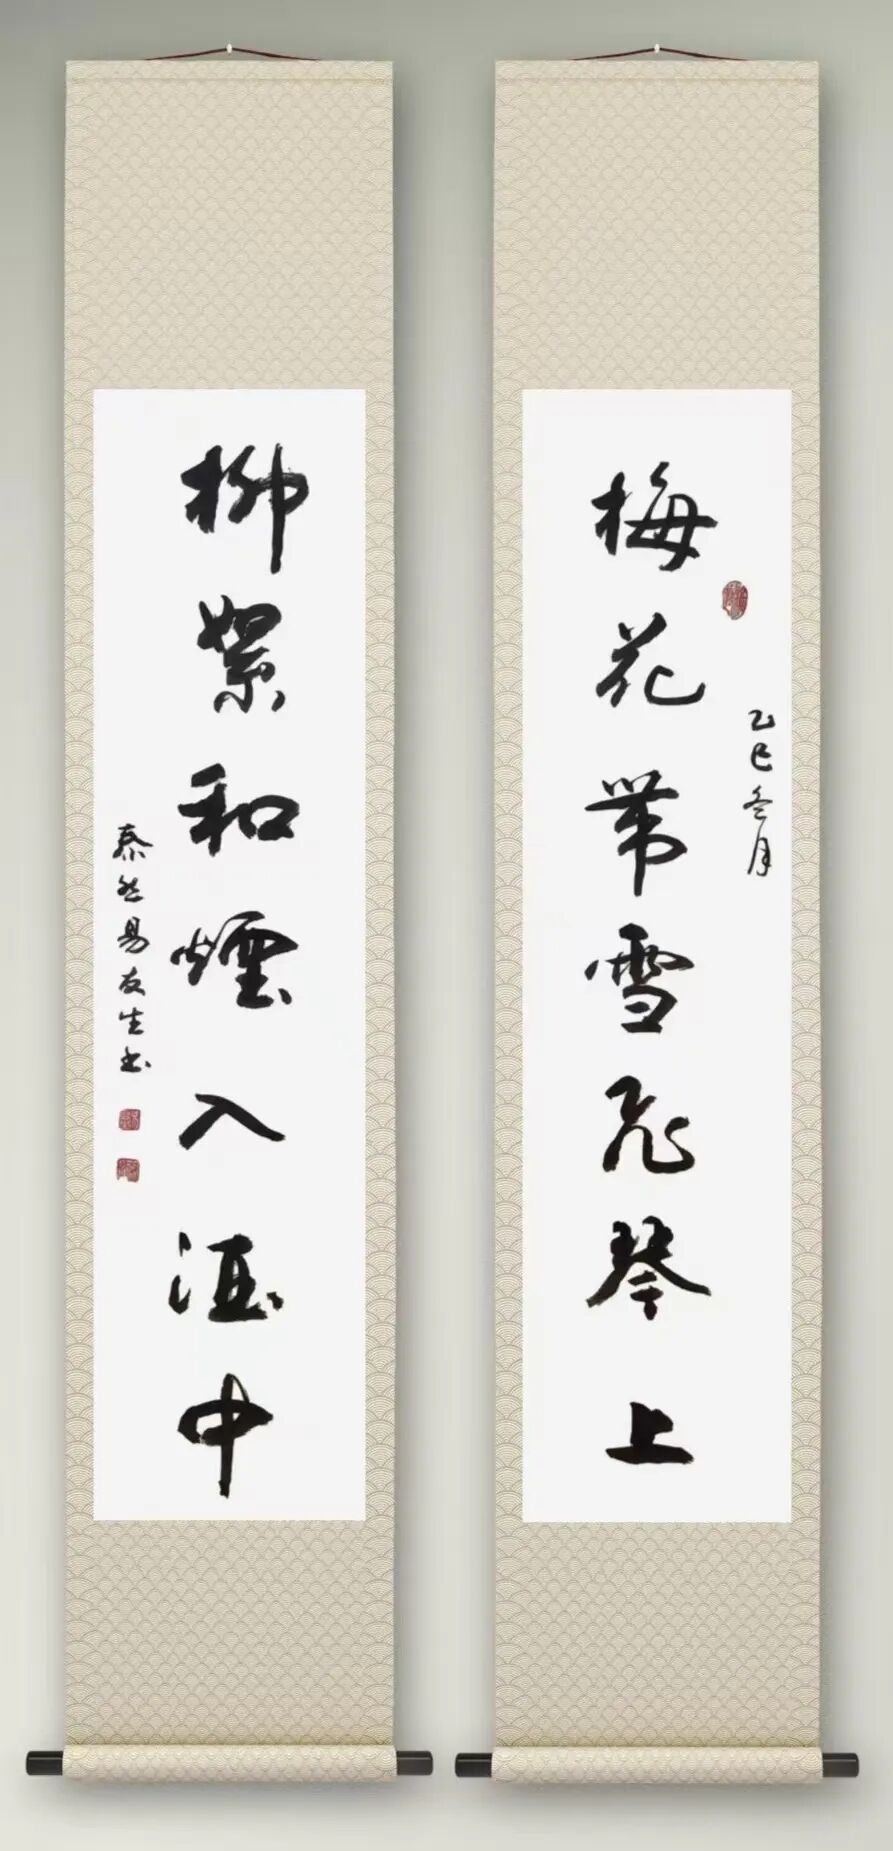 乙巳冬月
梅花带雪飛琴上
柳絮和煙入酒中
泰然易友生书